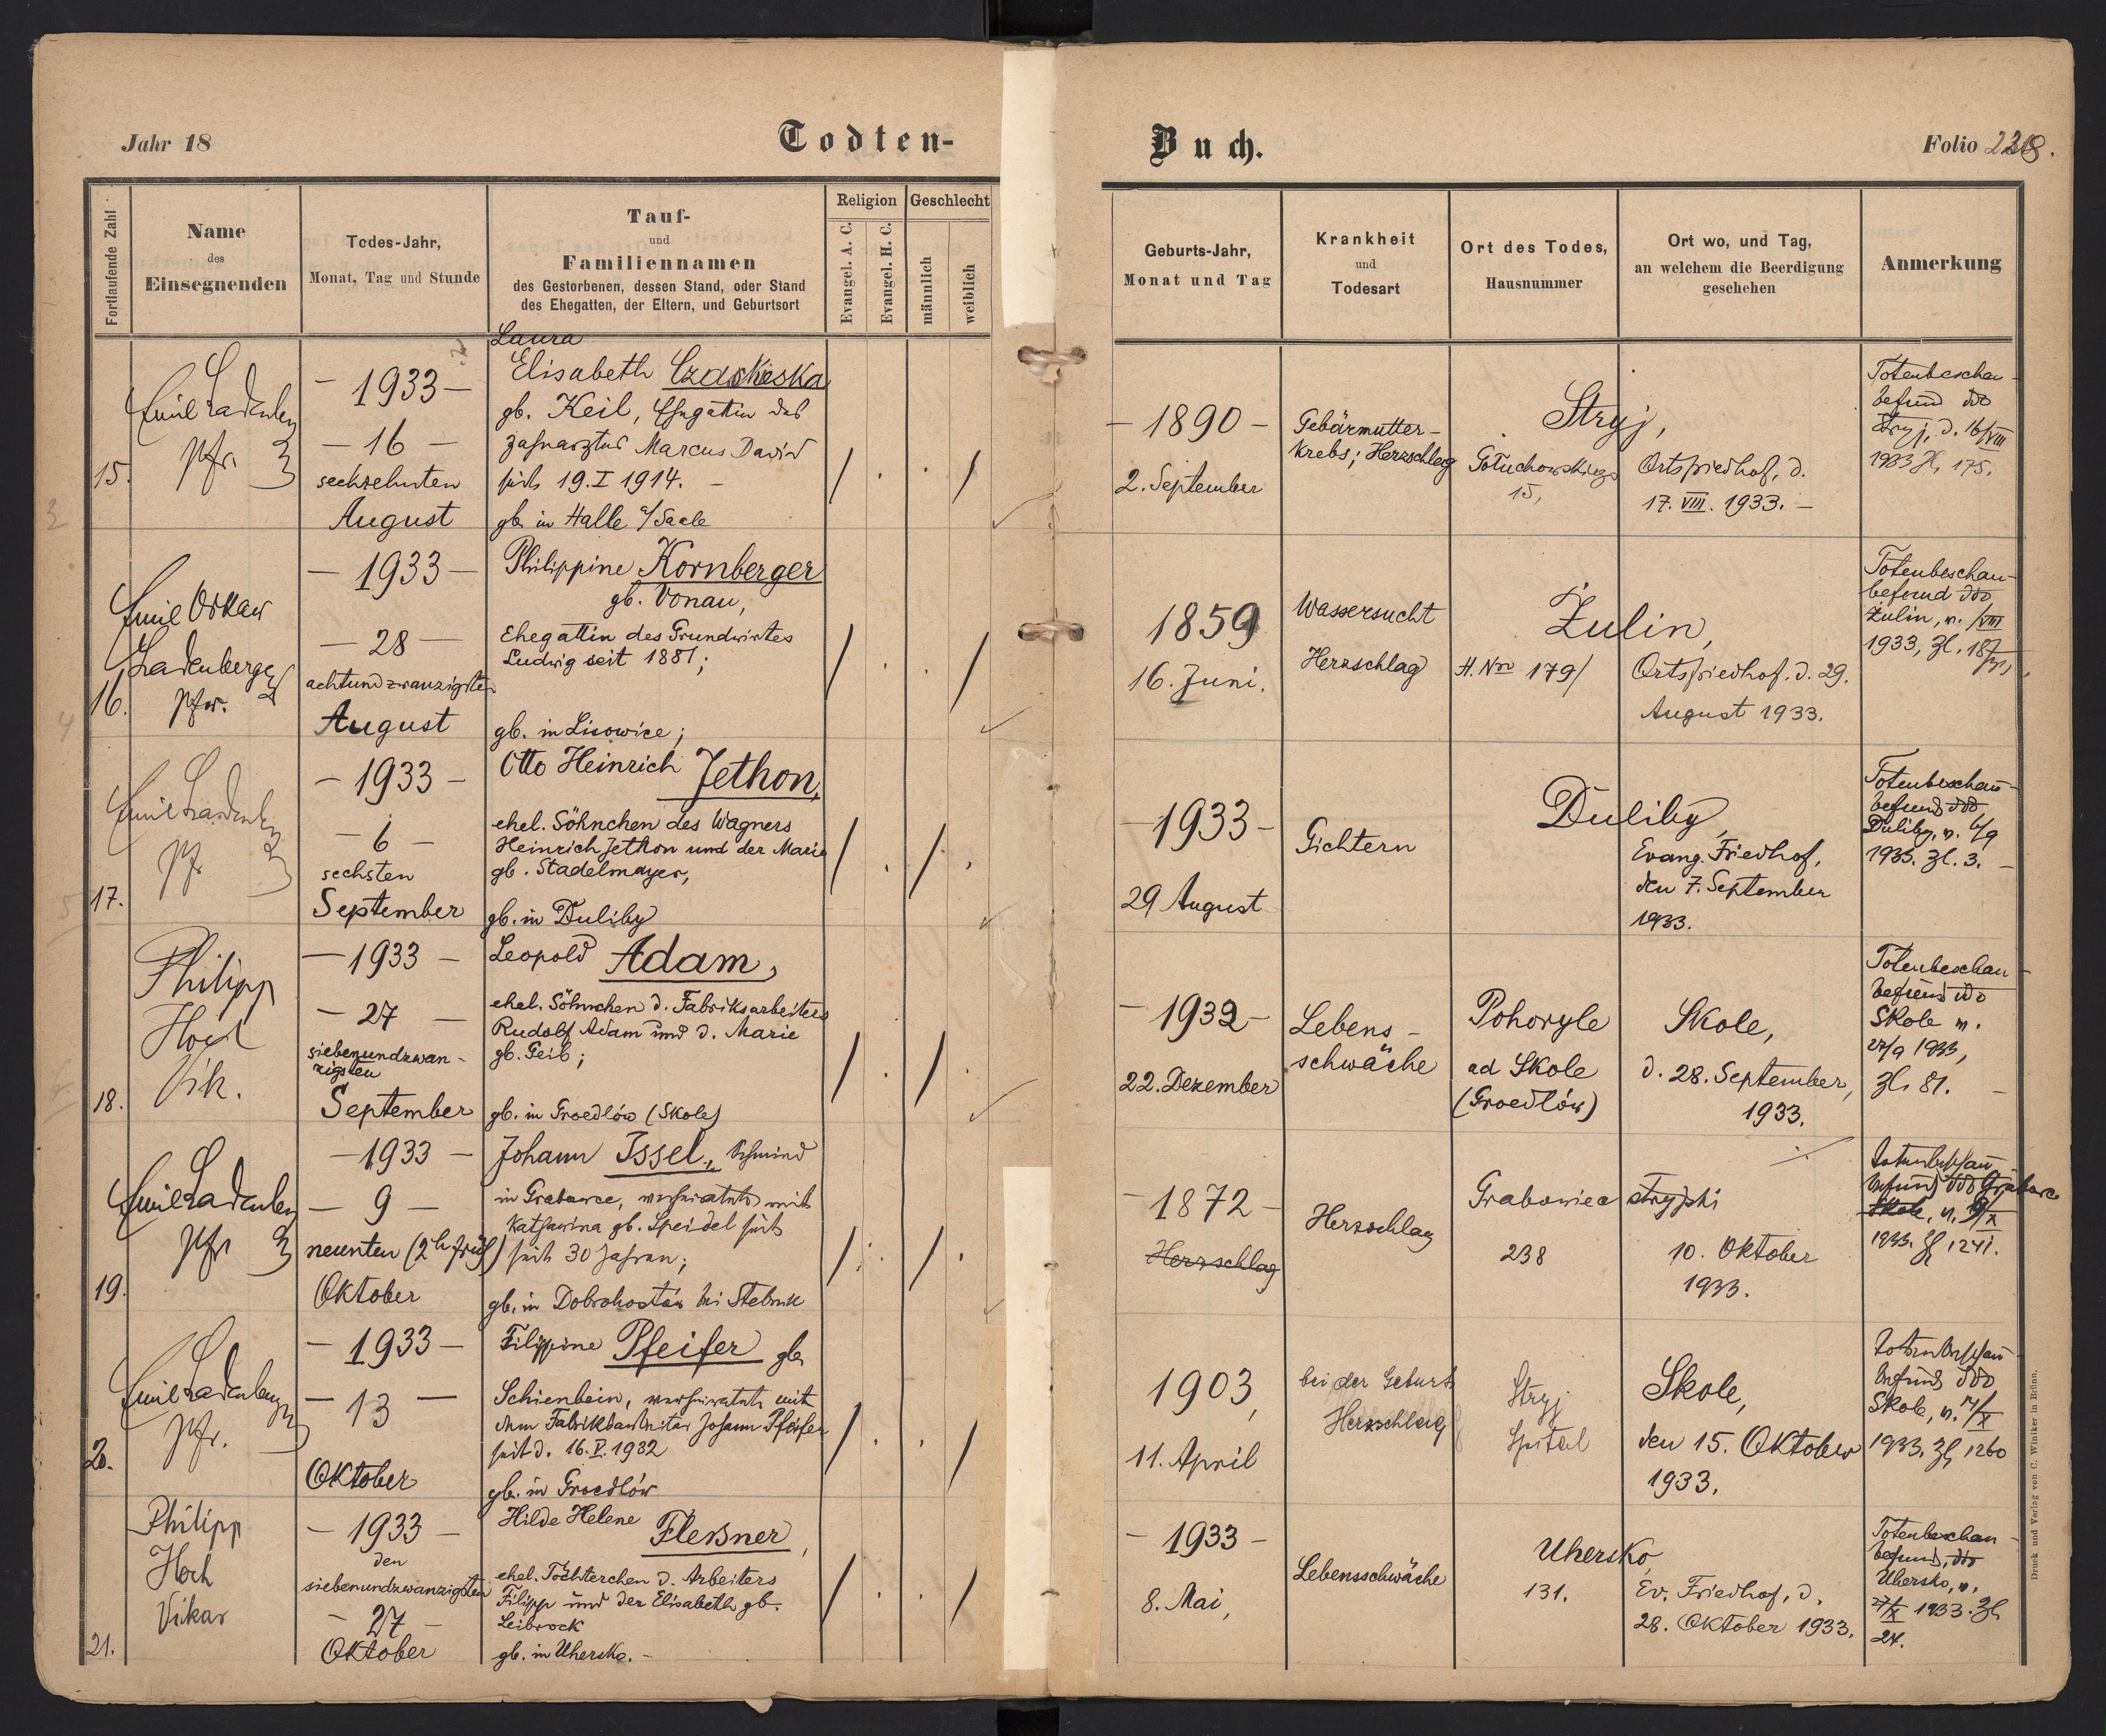 Jahr 18
Todten-
Buch.
Folio
Fortlaufende Zahl
Name
des
Einsegnenden
Todes-Jahr,
Monat, Tag und Stunde
Tauf-
und
Familiennamen
des Gestorbenen, dessen Stand, oder Stand
des Ehegatten, der Eltern, und Geburtsort
Religion
Evangel. A. C.
Evangel. H. C.
Geschlecht
männlich
weiblich
Geburts-Jahr,
Monat und Tag
Krankheit
und
Todesart
Ort des Todes,
Hausnummer
Ort wo, und Tag,
an welchem die Beerdigung
geschehen
Anmerkung
15.
Pfr.
– 1933 –
– 16 –
sechzehnten
August
Laura
Elisabeth
gb. Keil, Ehegattin des
Zahnarztes Marcus David
seit 19. I 1914. –
gb. in Halle a/Saale
– 1890 –
2. September
Gebärmutter-
krebs; Herzschlag
Stryj,
15,
Ortsfriedhof, d.
17. VIII. 1933. –
Totenbeschau-
befund ddo
Stryj, d. 16/VIII
1933 Zl. 175.
16.
Emil Oskar
Ladenberger
Pfr.
– 1933 –
– 28 –
achtundzwanzigsten
August
Philippine Kornberger
gb. Vonau,
Ehegattin des Grundwirtes
Ludwig seit 1881;
gb. in Lisowice;
1859
16. Juni.
Wassersucht
Herzschlag
Żulin,
H. Nro 179/
Ortsfriedhof. d. 29.
August 1933.
Totenbeschau-
befund ddo
Żulin, v. /VIII
1933, Zl.
17.
Pfr
– 1933 –
– 6 –
sechsten
September
Otto Heinrich Jethon,
ehel. Söhnchen des Wagners
Heinrich Jethon und der Marie
gb. Stadelmayer,
gb. in Duliby
– 1933 –
29 August
Gichtern
Duliby,
Evang. Friedhof,
den 7. September
1933.
Totenbeschau-
befund ddo
Duliby, v. 6/9
1933. Zl. 3. –
18.
Philipp
Hoch
Vik.
– 1933 –
– 27 –
siebenundzwan-
zigsten
September
Leopold Adam,
ehel. Söhnchen d. Fabriksarbeiters
Rudolf Adam und d. Marie
gb. Geib;
gb. in Groedlów (Skole)
– 1932 –
22. Dezember
Lebens-
schwäche
Pohoryle
ad Skole
(Groedlów)
Skole,
d. 28. September,
1933.
Totenbeschau-
befund ddo
Skole v.
27/9 1933,
Zl. 81. –
19.
Pfr
– 1933 –
– 9 –
neunten (2h früh)
Oktober
Johann Issel, Schmied
in Grabowce, verheiratet mit
Katharina gb. Speidel seit
seit 30 Jahren;
gb. in Dobrohostów bei Stebnik
– 1872 –
Herzschlag
Herzschlag
Grabowiec stryjski
238
10. Oktober
1933.
Totenbeschau-
befund ddo Grabowce
Skole, v. 9/X
1933. Zl 1241.
20.
Pfr.
– 1933 –
– 13 –
Oktober
Filippine Pfeifer gb.
Schienbein, verheiratet mit
dem Fabriksarbeiter Johann Pfeifer
seit d. 16. V. 1932
gb. in Groedlów
1903,
11. April
bei der Geburt
Herzschlag
Stryj
Spital
Skole,
den 15. Oktober
1933.
Totenbeschau-
befund ddo
Skole, v. 14/X
1933. Zl 1260
21.
Philipp
Hoch
Vikar
– 1933 –
den
siebenundzwanzigsten
– 27 –
Oktober
Hilde Helene Fleßner,
ehel. Töchterchen d. Arbeiters
Filipp und der Elisabeth gb.
Leibrock
gb. in Uhersko. –
– 1933 –
8. Mai,
Lebensschwäche
Uhersko,
131.
Ev. Friedhof, d.
28. Oktober 1933.
Totenbeschau-
befund, ddo
Uhersko, v.
27/X 1933. Zl
24.
Druck und Verlag von C. Winiker in Brünn.